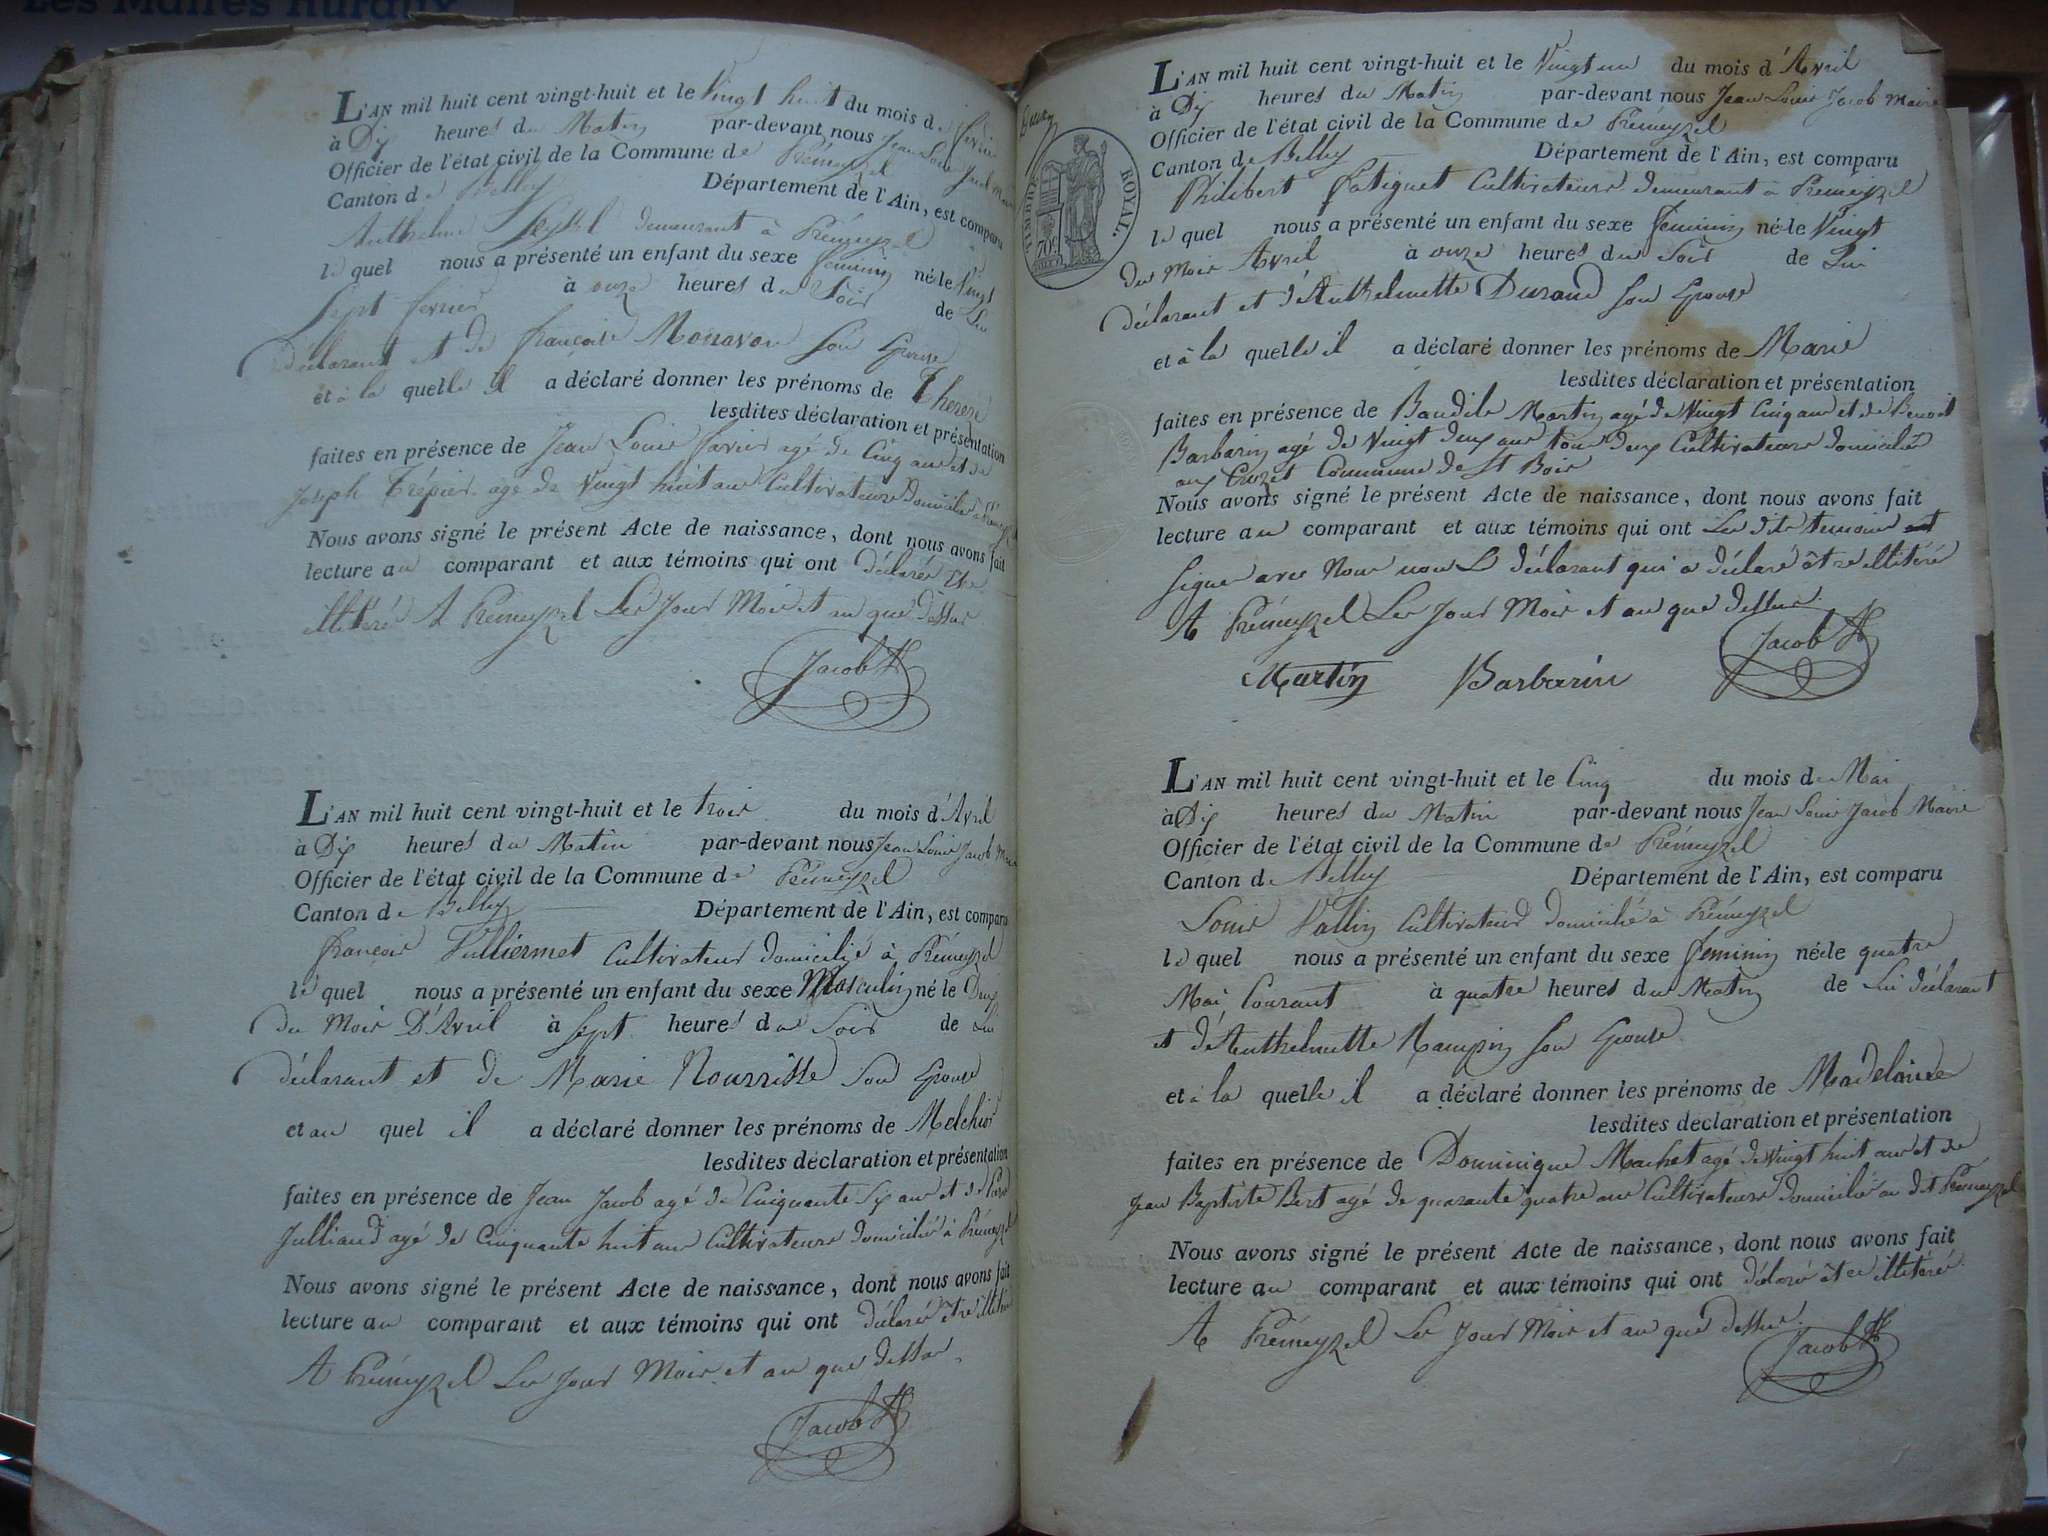 Les Maires Ruraux
L'AN mil huit cent vingt-huit et le Vingt huit du mois de fevrier
à Dix heures du Matin par-devant nous Jean Louis Jacob Maire
Officier de l'état civil de la Commune de Prémeyzel
Canton de Belley Département de l'Ain, est comparu
Anthelme demeurant à Prémeyzel
le quel nous a présenté un enfant du sexe feminin né le Vingt
Sept fevrier à onze heures du Soir de Lui
déclarant et de françoise Monavon Son Epouse
et à la quelle il a déclaré donner les prénoms de Therese
lesdites déclaration et présentation
faites en présence de Jean Louis favrier agé de Cinq ans et de
Joseph Trépier agé de Vingt huit ans Cultivateurs Domiciliés à Prémeyzel
Nous avons signé le présent Acte de naissance, dont nous avons fait
lecture au comparant et aux témoins qui ont déclarés Etre
illitéré A Prémeyzel Les Jour Mois et an que dessus
Jacob
L'AN mil huit cent vingt-huit et le trois du mois d'Avril
à Dix heures du Matin par-devant nous Jean Louis Jacob Maire
Officier de l'état civil de la Commune de Prémeyzel
Canton de Belley Département de l'Ain, est comparu
françois Vulliermet Cultivateur domicilié à Prémeyzel
le quel nous a présenté un enfant du sexe Masculin né le Deux
du Mois D'Avril à Sept heures du Soir de Lui
déclarant et de Marie Nourrisse Son Epouse
et au quel il a déclaré donner les prénoms de Melchior
lesdites déclaration et présentation
faites en présence de Jean Jacob agé de Cinquante Six ans et de
Julliand agé de Cinquante huit ans Cultivateurs domicilié à Prémeyzel
Nous avons signé le présent Acte de naissance, dont nous avons fait
lecture au comparant et aux témoins qui ont déclaré être illitéré
A Prémeyzel Les Jour Mois et an que dessus.
Jacob
TIMBRE ROYAL.
70 c
L'AN mil huit cent vingt-huit et le Vingt un du mois d'Avril
à Dix heures du Matin par-devant nous Jean Louis Jacob Maire
Officier de l'état civil de la Commune de Prémeyzel
Canton de Belley Département de l'Ain, est comparu
Philibert Patiguet Cultivateur demeurant à Prémeyzel
le quel nous a présenté un enfant du sexe feminin né le Vingt
du Mois Avril à onze heures du Soir de Lui
déclarant et d'Anthelmette Durand Son Epouse
et à la quelle il a déclaré donner les prénoms de Marie
lesdites déclaration et présentation
faites en présence de Baudile Martin agé de Vingt Cinq ans et de Benoit
Barbarin agé de Vingt deux ans tous deux Cultivateurs domiciliés
aux Crozet Commune de St Bois
Nous avons signé le présent Acte de naissance, dont nous avons fait
lecture au comparant et aux témoins qui ont Les dits temoins ont
Signés avec Nous non Le déclarant qui a déclaré être illitéré
A Prémeyzel Les Jour Mois et an que dessus.
Martin Barbarin Jacob
L'AN mil huit cent vingt-huit et le Cinq du mois de Mai
à Dix heures du Matin par-devant nous Jean Louis Jacob Maire
Officier de l'état civil de la Commune de Prémeyzel
Canton de Belley Département de l'Ain, est comparu
Louis Vallin Cultivateur domicilié à Prémeyzel
le quel nous a présenté un enfant du sexe feminin né le quatre
Mai Courant à quatre heures du Matin de Lui déclarant
et d'Anthelmette Rampin Son Epouse
et à la quelle il a déclaré donner les prénoms de Madelaine
lesdites déclaration et présentation
faites en présence de Dominique Machet agé de Vingt huit ans et de
Jean Baptiste Bert agé de quarante quatre ans Cultivateurs domicilié au dit Prémeyzel
Nous avons signé le présent Acte de naissance, dont nous avons fait
lecture au comparant et aux témoins qui ont déclaré être illitéré
A Prémeyzel Les Jour Mois et an que dessus.
Jacob